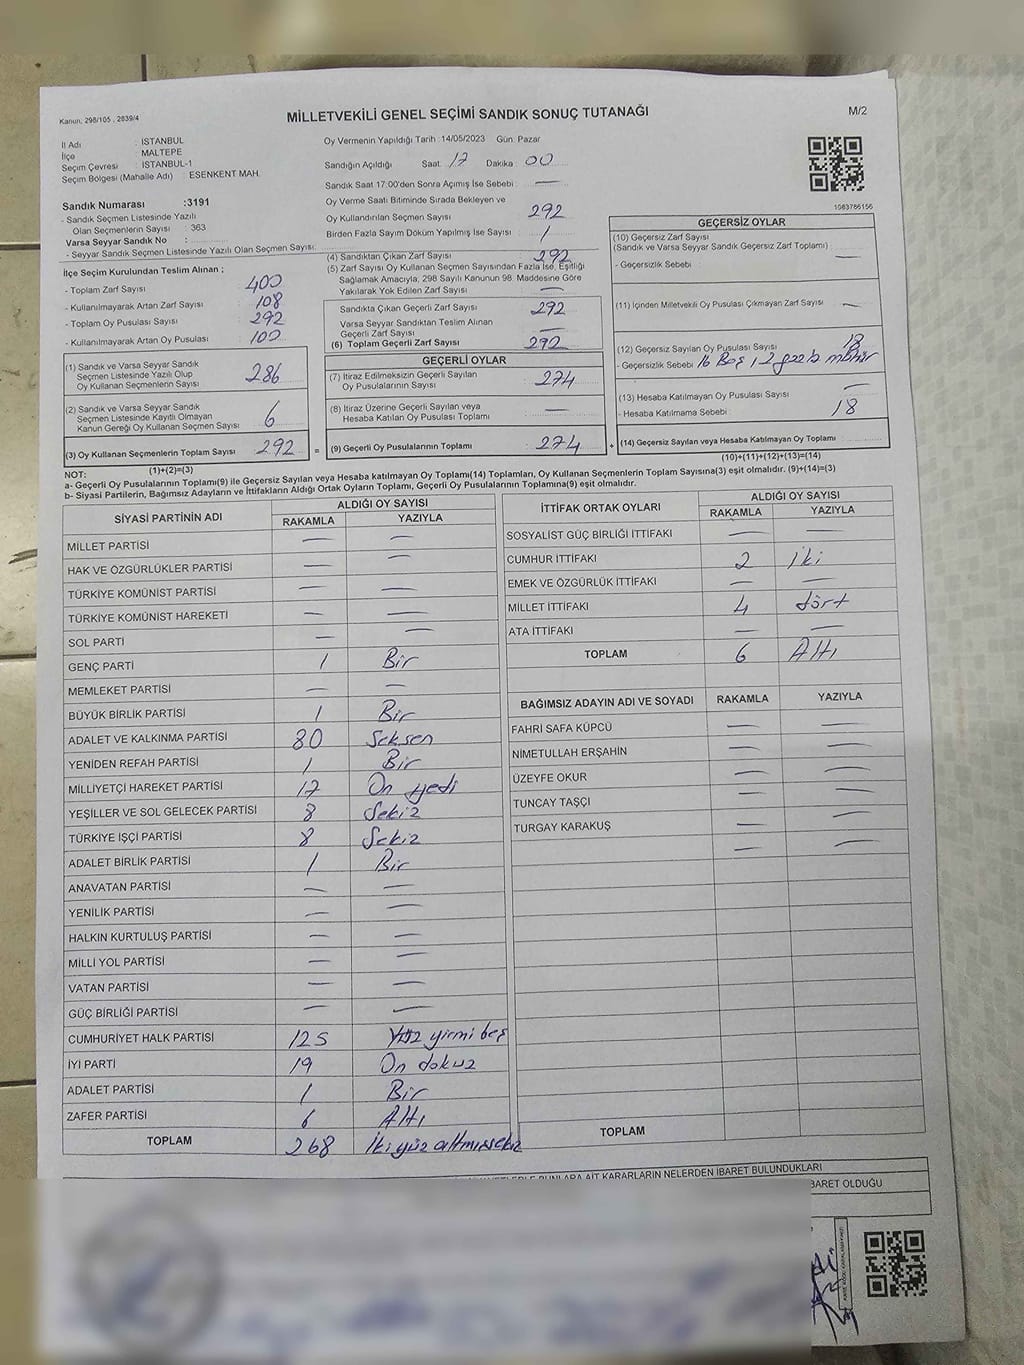 Kanun: 298/105 , 2839/4
MİLLETVEKİLİ GENEL SEÇİMİ SANDIK SONUÇ TUTANAĞI
M/2
İl Adı : İSTANBUL
İlçe : MALTEPE
Seçim Çevresi : İSTANBUL-1
Seçim Bölgesi (Mahalle Adı) : ESENKENT MAH.
Sandık Numarası :3191
- Sandık Seçmen Listesinde Yazılı
Olan Seçmenlerin Sayısı : 363
Varsa Seyyar Sandık No :
- Seyyar Sandık Seçmen Listesinde Yazılı Olan Seçmen Sayısı:
Oy Vermenin Yapıldığı Tarih :14/05/2023 Gün: Pazar
Sandığın Açıldığı Saat: 17 Dakika : 00
Sandık Saat 17:00'den Sonra Açımış İse Sebebi : —
Oy Verme Saati Bitiminde Sırada Bekleyen ve
Oy Kullandırılan Seçmen Sayısı 292
Birden Fazla Sayım Döküm Yapılmış İse Sayısı: 1
(4) Sandıktan Çıkan Zarf Sayısı : 292
(5) Zarf Sayısı Oy Kullanan Seçmen Sayısından Fazla İse, Eşitliği
Sağlamak Amacıyla, 298 Sayılı Kanunun 98. Maddesine Göre
Yakılarak Yok Edilen Zarf Sayısı : —
1083786156
İlçe Seçim Kurulundan Teslim Alınan ;
- Toplam Zarf Sayısı : 400
- Kullanılmayarak Artan Zarf Sayısı : 108
- Toplam Oy Pusulası Sayısı : 292
- Kullanılmayarak Artan Oy Pusulası : 100
(1) Sandık ve Varsa Seyyar Sandık
Seçmen Listesinde Yazılı Olup
Oy Kullanan Seçmenlerin Sayısı : 286
(2) Sandık ve Varsa Seyyar Sandık
Seçmen Listesinde Kayıtlı Olmayan
Kanun Gereği Oy Kullanan Seçmen Sayısı : 6
(3) Oy Kullanan Seçmenlerin Toplam Sayısı : 292
(1)+(2)=(3)
Sandıkta Çıkan Geçerli Zarf Sayısı : 292
Varsa Seyyar Sandıktan Teslim Alınan
Geçerli Zarf Sayısı : —
(6) Toplam Geçerli Zarf Sayısı : 292
GEÇERLİ OYLAR
(7) İtiraz Edilmeksizin Geçerli Sayılan
Oy Pusulalarının Sayısı : 274
(8) İtiraz Üzerine Geçerli Sayılan veya
Hesaba Katılan Oy Pusulası Toplamı : —
= (9) Geçerli Oy Pusulalarının Toplamı : 274 +
GEÇERSİZ OYLAR
(10) Geçersiz Zarf Sayısı
(Sandık ve Varsa Seyyar Sandık Geçersiz Zarf Toplamı) : —
- Geçersizlik Sebebi :
(11) İçinden Milletvekili Oy Pusulası Çıkmayan Zarf Sayısı : —
(12) Geçersiz Sayılan Oy Pusulası Sayısı : 18
- Geçersizlik Sebebi : 16 Boş, 2 mühür
(13) Hesaba Katılmayan Oy Pusulası Sayısı : —
- Hesaba Katılmama Sebebi : 18
(14) Geçersiz Sayılan veya Hesaba Katılmayan Oy Toplamı :
(10)+(11)+(12)+(13)=(14)
NOT:
a- Geçerli Oy Pusulalarının Toplamı(9) ile Geçersiz Sayılan veya Hesaba katılmayan Oy Toplamı(14) Toplamları, Oy Kullanan Seçmenlerin Toplam Sayısına(3) eşit olmalıdır. (9)+(14)=(3)
b- Siyasi Partilerin, Bağımsız Adayların ve İttifakların Aldığı Ortak Oyların Toplamı, Geçerli Oy Pusulalarının Toplamına(9) eşit olmalıdır.
SİYASİ PARTİNİN ADI
ALDIĞI OY SAYISI
RAKAMLA YAZIYLA
MİLLET PARTİSİ — —
HAK VE ÖZGÜRLÜKLER PARTİSİ — —
TÜRKİYE KOMÜNİST PARTİSİ — —
TÜRKİYE KOMÜNİST HAREKETİ — —
SOL PARTİ — —
GENÇ PARTİ 1 Bir
MEMLEKET PARTİSİ — —
BÜYÜK BİRLİK PARTİSİ 1 Bir
ADALET VE KALKINMA PARTİSİ 80 Seksen
YENİDEN REFAH PARTİSİ 1 Bir
MİLLİYETÇİ HAREKET PARTİSİ 17 On yedi
YEŞİLLER VE SOL GELECEK PARTİSİ 8 Sekiz
TÜRKİYE İŞÇİ PARTİSİ 8 Sekiz
ADALET BİRLİK PARTİSİ 1 Bir
ANAVATAN PARTİSİ — —
YENİLİK PARTİSİ — —
HALKIN KURTULUŞ PARTİSİ — —
MİLLİ YOL PARTİSİ — —
VATAN PARTİSİ — —
GÜÇ BİRLİĞİ PARTİSİ — —
CUMHURİYET HALK PARTİSİ 125 Yüz yirmi beş
İYİ PARTİ 19 On dokuz
ADALET PARTİSİ 1 Bir
ZAFER PARTİSİ 6 Altı
TOPLAM 268 İki yüz altmışsekiz
İTTİFAK ORTAK OYLARI
ALDIĞI OY SAYISI
RAKAMLA YAZIYLA
SOSYALİST GÜÇ BİRLİĞİ İTTİFAKI — —
CUMHUR İTTİFAKI 2 iki
EMEK VE ÖZGÜRLÜK İTTİFAKI — —
MİLLET İTTİFAKI 4 dört
ATA İTTİFAKI — —
TOPLAM 6 Altı
BAĞIMSIZ ADAYIN ADI VE SOYADI RAKAMLA YAZIYLA
FAHRİ SAFA KÜPCÜ — —
NİMETULLAH ERŞAHİN — —
ÜZEYFE OKUR — —
TUNCAY TAŞÇI — —
TURGAY KARAKUŞ — —
— —
TOPLAM
BUNLARA AİT KARARLARIN NELERDEN İBARET BULUNDUKLARI
BARET OLDUĞU